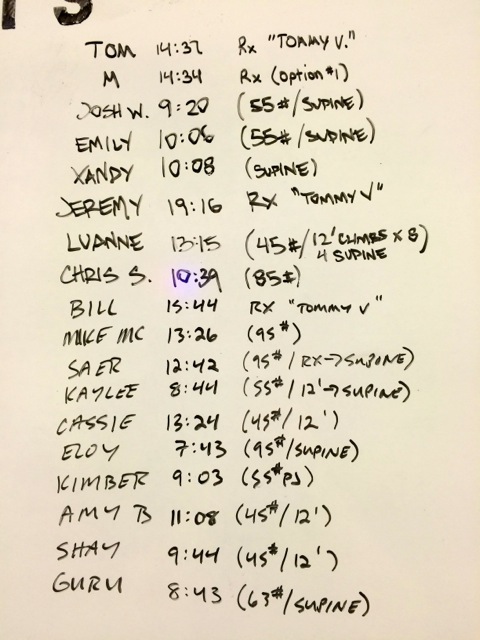 TOM 14:37 Rx "TOMMY V."
M 14:34 Rx (option #1)
JOSH W. 9:20 (55#/SUPINE)
EMILY 10:06 (55#/SUPINE)
XANDY 10:08 (SUPINE)
JEREMY 19:16 RX "TOMMY V"
LUANNE 13:15 (45#/12' CLIMBS x 8/
4 SUPINE)
CHRIS S. 10:39 (85#)
BILL 15:44 RX "TOMMY V"
MIKE MC 13:26 (95#)
SAER 12:42 (95#/RX→SUPINE)
KAYLEE 8:44 (55#/12'→SUPINE)
CASSIE 13:24 (45#/12')
ELOY 7:43 (95#/SUPINE)
KIMBER 9:03 (55# PS)
AMY B 11:08 (45#/12')
SHAY 9:44 (45#/12')
GURU 8:43 (63#/SUPINE)